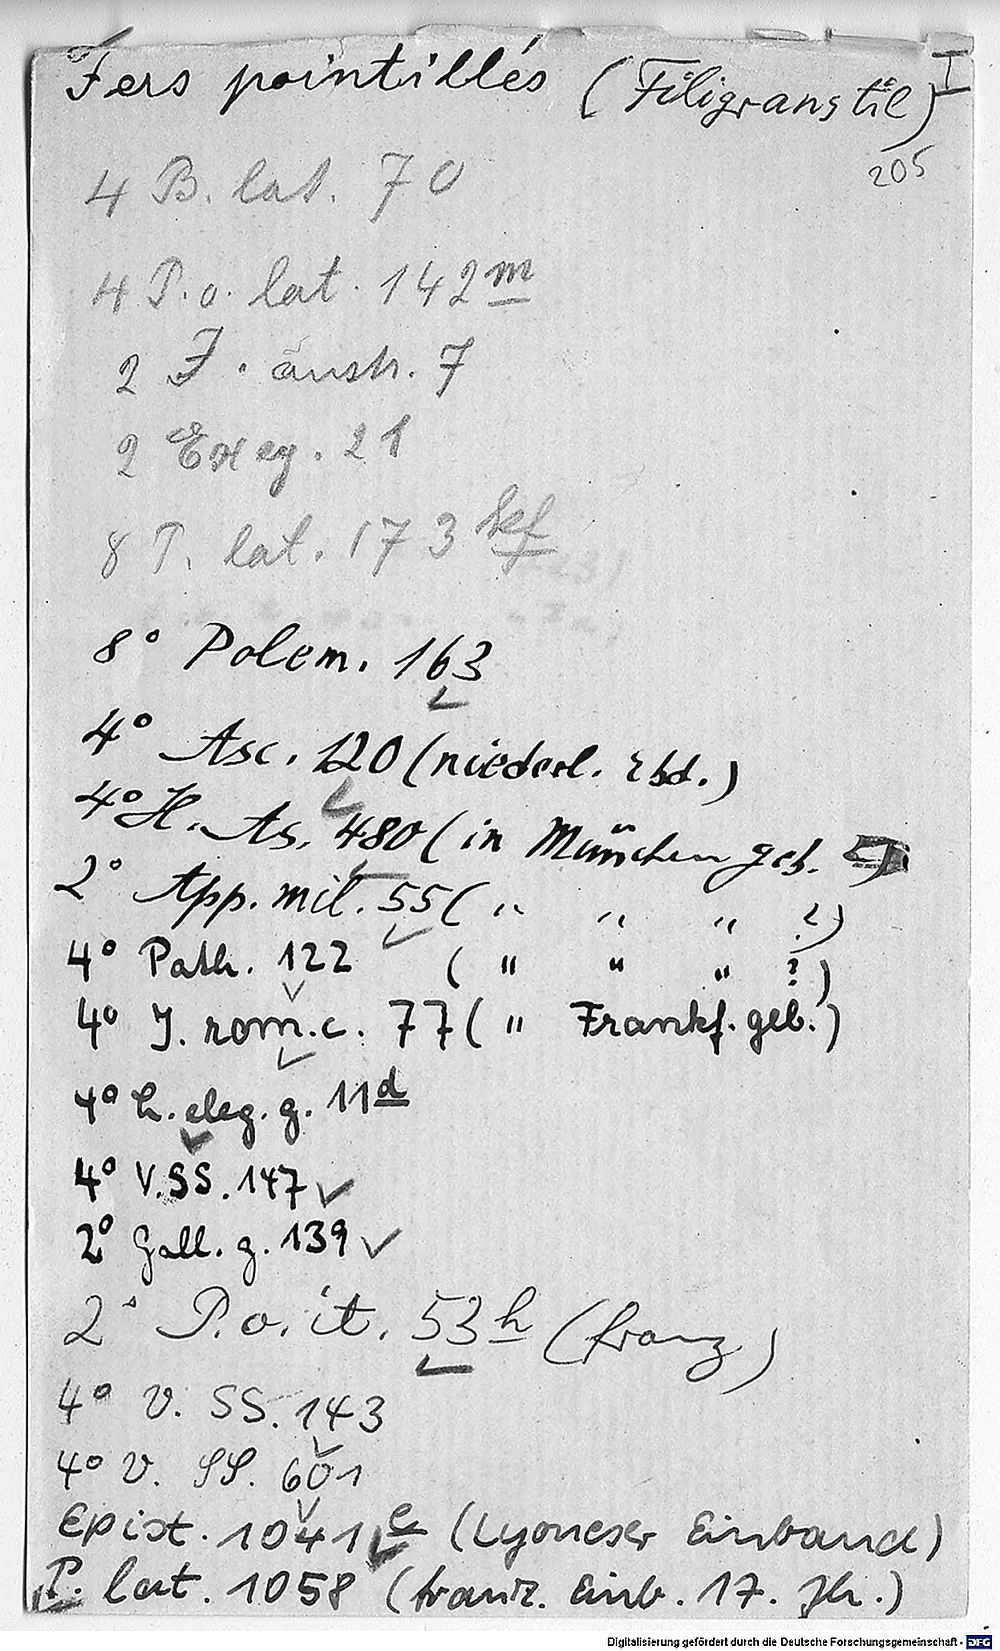 Fers pointillés (Filigranstil) I
205
4 B. lat. 70
4 P. o. lat. 142 m
2 J. austr. 7
2 Exeg. 21
8 P. lat. 173 kf
8° Polem. 163
4° Asc. 120 (niederl. Ebd.)
4° H. As. 480 (in München geb. ?)
2° App. mil. 55 ( " " " ?)
4° Path. 122 ( " " " ?)
4° J. rom. c. 77 ( " Frankf. geb.)
4° L. eleg. g. 11 d
4° V. SS. 147
2° Gall. g. 139
2° P. o. it. 53 h (franz)
4° V. SS. 143
4° V. SS. 601
Epist. 1041 e (Lyoneser Einband)
P. lat. 1058 (franz. Einb. 17. Jh.)
Digitalisierung gefördert durch die Deutsche Forschungsgemeinschaft - DFG